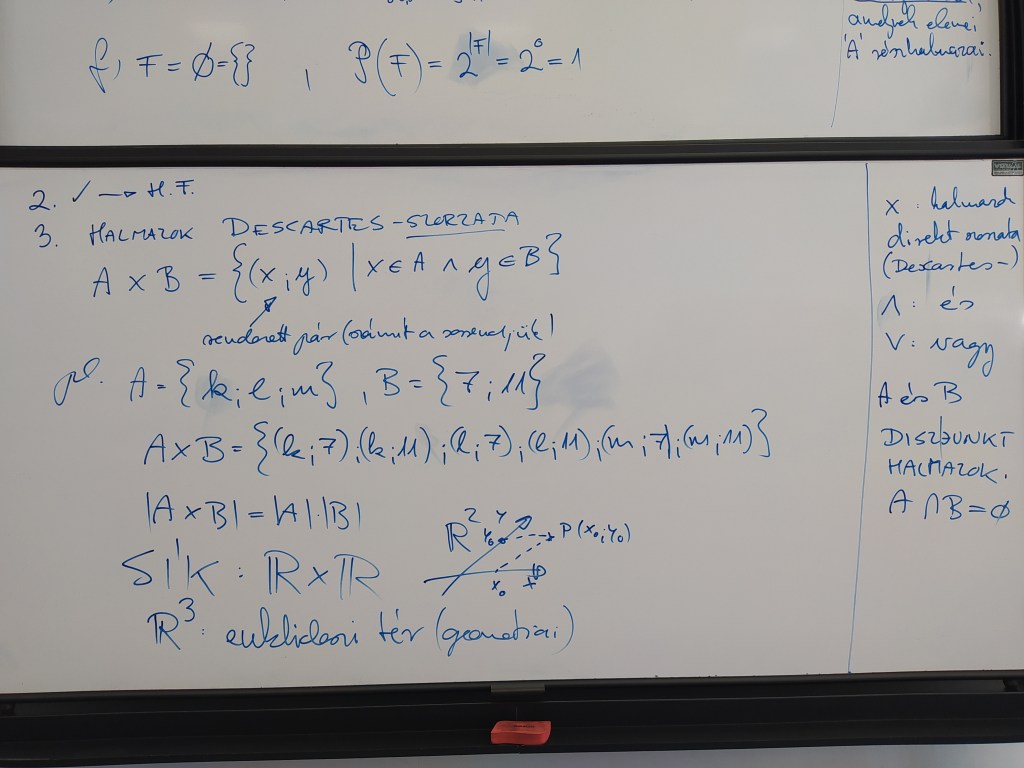 f) F = ∅ = {} , P(F) = 2^|F| = 2^0 = 1
amelyek elemei
'A' részhalmazai.
2. ✓ → H.F.
3. HALMAZOK DESCARTES-SZORZATA
A × B = {(x;y) | x ∈ A ∧ y ∈ B}
rendezett pár (számít a sorrendjük!)
pl. A = {k;l;m}, B = {7;11}
A×B = {(k;7);(k;11);(l;7);(l;11);(m;7);(m;11)}
|A × B| = |A|·|B|
SÍK : ℝ×ℝ
ℝ² y y₀ P(x₀;y₀)
x₀ x
ℝ³: euklideszi tér (geometriai)
x : halmazok
direkt szorzata
(Descartes-)
∧ : és
∨ : vagy
A és B
DISZJUNKT
HALMAZOK.
A ∩ B = ∅